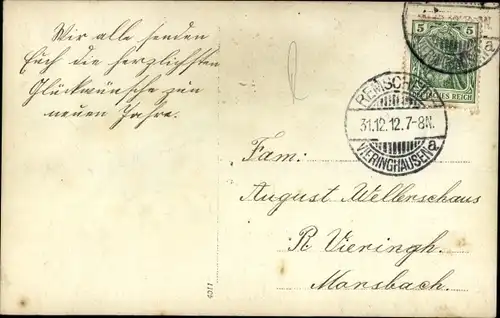 Wir alle senden
Euch die herzlichsten
Glückwünsche zum
neuen Jahre.
5 5
DEUTSCHES REICH
REMSCHEID
31.12.12.7-8N.
VIERINGHAUSEN
a
a
Fam:
August Wellerschaus
R Vieringh.
Morsbach.